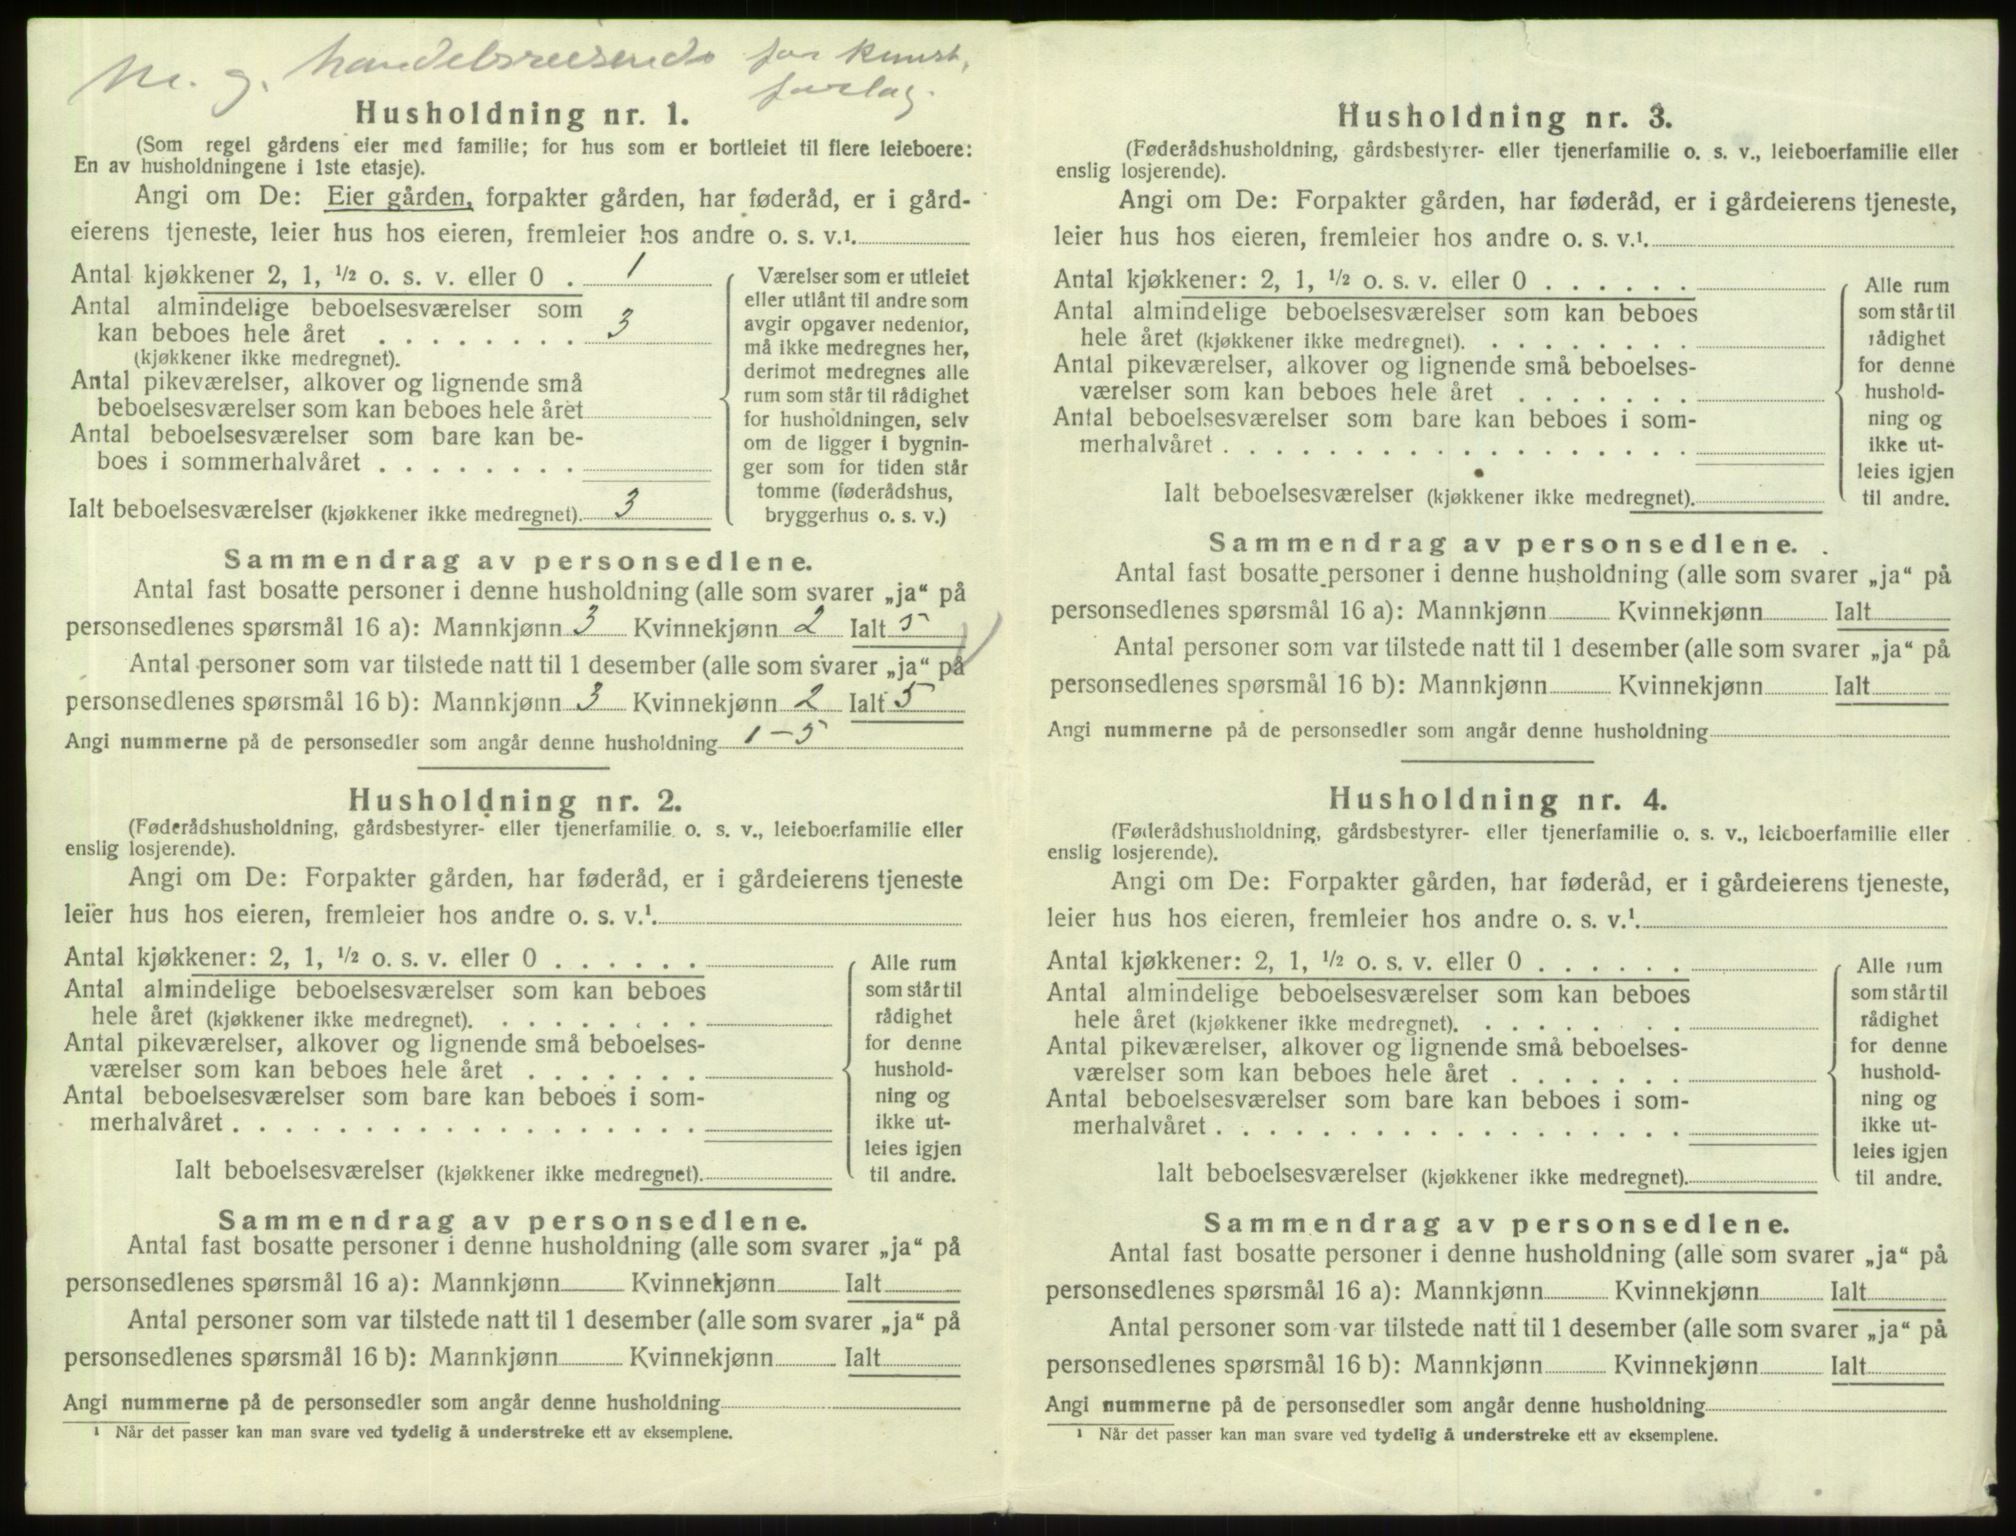 m. g. handelsreisende for kunst,
forlag.
Husholdning nr. 1.
(Som regel gårdens eier med familie; for hus som er bortleiet til flere leieboere:
En av husholdningene i 1ste etasje).
Angi om De: Eier gården, forpakter gården, har føderåd, er i gård-
eierens tjeneste, leier hus hos eieren, fremleier hos andre o. s. v.¹
Antal kjøkkener 2, 1, ½ o. s. v. eller 0 . 1
Antal almindelige beboelsesværelser som
kan beboes hele året . . . . . . . . 3
(kjøkkener ikke medregnet).
Antal pikeværelser, alkover og lignende små
beboelsesværelser som kan beboes hele året
Antal beboelsesværelser som bare kan be-
boes i sommerhalvåret . . . . . . . .
Ialt beboelsesværelser (kjøkkener ikke medregnet). 3
Værelser som er utleiet
eller utlånt til andre som
avgir opgaver nedenfor,
må ikke medregnes her,
derimot medregnes alle
rum som står til rådighet
for husholdningen, selv
om de ligger i bygnin-
ger som for tiden står
tomme (føderådshus,
bryggerhus o. s. v.)
Sammendrag av personsedlene.
Antal fast bosatte personer i denne husholdning (alle som svarer „ja“ på
personsedlenes spørsmål 16 a): Mannkjønn 3 Kvinnekjønn 2 Ialt 5
Antal personer som var tilstede natt til 1 desember (alle som svarer „ja“ på
personsedlenes spørsmål 16 b): Mannkjønn 3 Kvinnekjønn 2 Ialt 5
Angi nummerne på de personsedler som angår denne husholdning 1-5
Husholdning nr. 2.
(Føderådshusholdning, gårdsbestyrer- eller tjenerfamilie o. s. v., leieboerfamilie eller
enslig losjerende).
Angi om De: Forpakter gården, har føderåd, er i gårdeierens tjeneste
leier hus hos eieren, fremleier hos andre o. s. v.¹.
Antal kjøkkener: 2, 1, ½ o. s. v. eller 0 . . . . . .
Antal almindelige beboelsesværelser som kan beboes
hele året (kjøkkener ikke medregnet). . . . . . . . .
Antal pikeværelser, alkover og lignende små beboelses-
værelser som kan beboes hele året . . . . . . .
Antal beboelsesværelser som bare kan beboes i som-
merhalvåret . . . . . . . . . . . . . . . . . .
Ialt beboelsesværelser (kjøkkener ikke medregnet).
Alle rum
som står til
rådighet
for denne
hushold-
ning og
ikke ut-
leies igjen
til andre.
Sammendrag av personsedlene.
Antal fast bosatte personer i denne husholdning (alle som svarer „ja“ på
personsedlenes spørsmål 16 a): Mannkjønn Kvinnekjønn Ialt
Antal personer som var tilstede natt til 1 desember (alle som svarer „ja“ på
personsedlenes spørsmål 16 b): Mannkjønn Kvinnekjønn Ialt
Angi nummerne på de personsedler som angår denne husholdning
¹ Når det passer kan man svare ved tydelig å understreke ett av eksemplene.
Husholdning nr. 3.
(Føderådshusholdning, gårdsbestyrer- eller tjenerfamilie o. s. v., leieboerfamilie eller
enslig losjerende).
Angi om De: Forpakter gården, har føderåd, er i gårdeierens tjeneste,
leier hus hos eieren, fremleier hos andre o. s. v.¹.
Antal kjøkkener: 2, 1, ½ o. s. v. eller 0 . . . . . .
Antal almindelige beboelsesværelser som kan beboes
hele året (kjøkkener ikke medregnet). . . . . . . . .
Antal pikeværelser, alkover og lignende små beboelses-
værelser som kan beboes hele året . . . . . . .
Antal beboelsesværelser som bare kan beboes i som-
merhalvåret . . . . . . . . . . . . . . . . . .
Ialt beboelsesværelser (kjøkkener ikke medregnet).
Alle rum
som står til
rådighet
for denne
hushold-
ning og
ikke ut-
leies igjen
til andre.
Sammendrag av personsedlene.
Antal fast bosatte personer i denne husholdning (alle som svarer „ja“ på
personsedlenes spørsmål 16 a): Mannkjønn Kvinnekjønn Ialt
Antal personer som var tilstede natt til 1 desember (alle som svarer „ja“ på
personsedlenes spørsmål 16 b): Mannkjønn Kvinnekjønn Ialt
Angi nummerne på de personsedler som angår denne husholdning
Husholdning nr. 4.
(Føderådshusholdning, gårdsbestyrer- eller tjenerfamilie o. s. v., leieboerfamilie eller
enslig losjerende).
Angi om De: Forpakter gården, har føderåd, er i gårdeierens tjeneste,
leier hus hos eieren, fremleier hos andre o. s. v.¹.
Antal kjøkkener: 2, 1, ½ o. s. v. eller 0 . . . . . .
Antal almindelige beboelsesværelser som kan beboes
hele året (kjøkkener ikke medregnet). . . . . . . .
Antal pikeværelser, alkover og lignende små beboelses-
værelser som kan beboes hele året . . . . . . .
Antal beboelsesværelser som bare kan beboes i som-
merhalvåret . . . . . . . . . . . . . . . . . .
Ialt beboelsesværelser (kjøkkener ikke medregnet).
Alle rum
som står til
rådighet
for denne
hushold-
ning og
ikke ut-
leies igjen
til andre.
Sammendrag av personsedlene.
Antal fast bosatte personer i denne husholdning (alle som svarer „ja“ på
personsedlenes spørsmål 16 a): Mannkjønn Kvinnekjønn Ialt
Antal personer som var tilstede natt til 1 desember (alle som svarer „ja“ på
personsedlenes spørsmål 16 b): Mannkjønn Kvinnekjønn Ialt
Angi nummerne på de personsedler som angår denne husholdning
¹ Når det passer kan man svare ved tydelig å understreke ett av eksemplene.